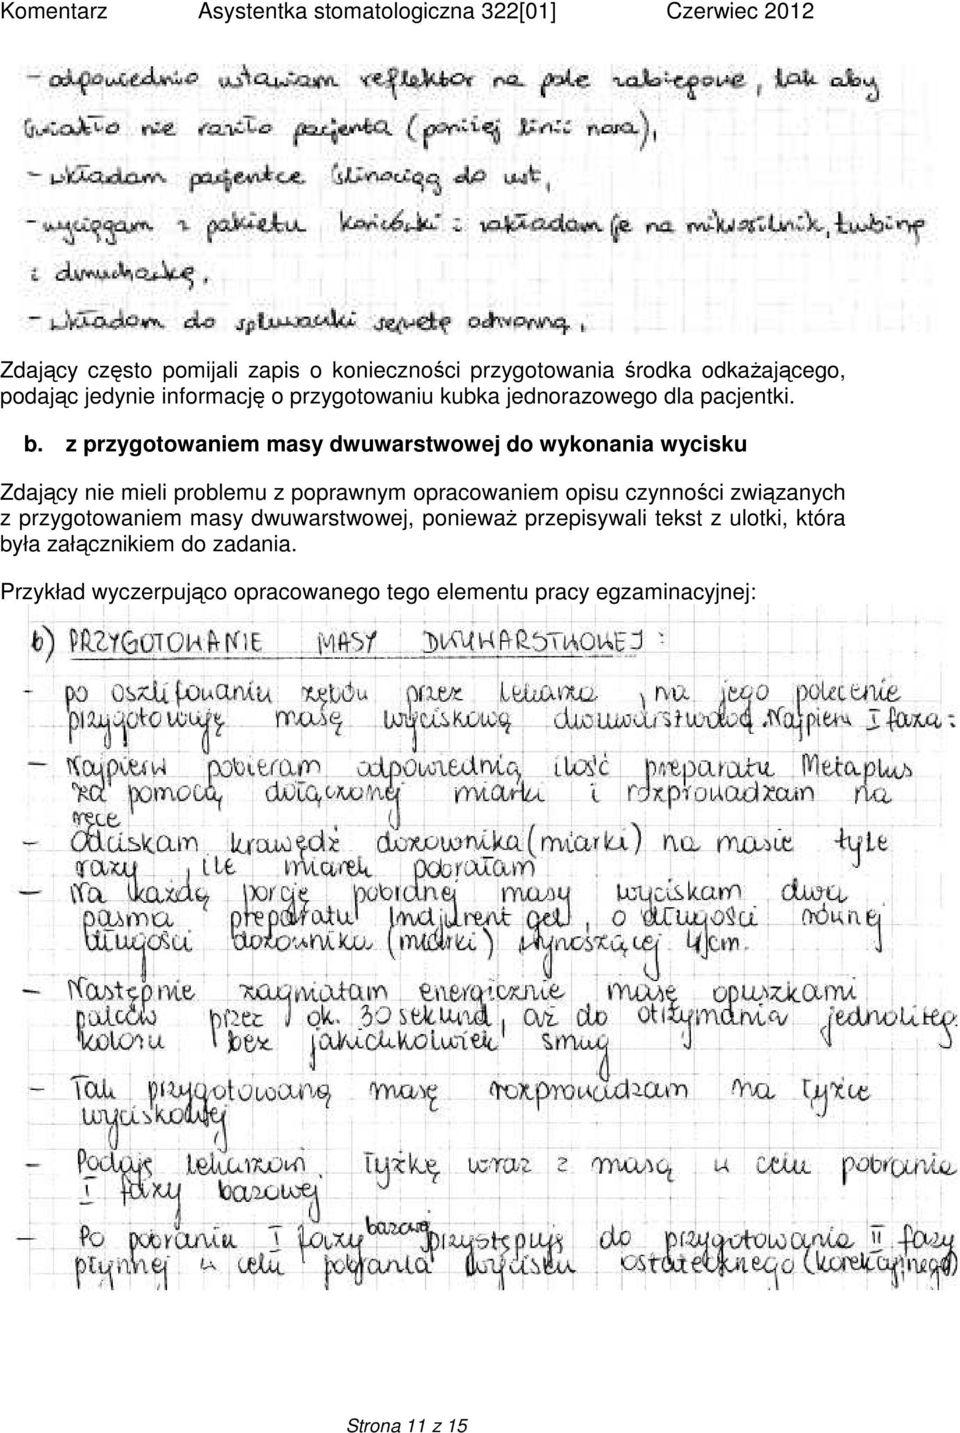 Komentarz Asystentka stomatologiczna 322[01] Czerwiec 2012
- odpowiednio ustawiam reflektor na pole zabiegowe, tak aby
światło nie raziło pacjenta (poniżej linii nosa),
- wkładam pacjentce ślinociąg do ust,
- wyciągam z pakietu końcówki i zakładam je na mikrosilnik, turbinę
i dmuchawkę,
- wkładam do spluwaczki serwetę ochronną.
Zdający często pomijali zapis o konieczności przygotowania środka odkażającego,
podając jedynie informację o przygotowaniu kubka jednorazowego dla pacjentki.
b. z przygotowaniem masy dwuwarstwowej do wykonania wycisku
Zdający nie mieli problemu z poprawnym opracowaniem opisu czynności związanych
z przygotowaniem masy dwuwarstwowej, ponieważ przepisywali tekst z ulotki, która
była załącznikiem do zadania.
Przykład wyczerpująco opracowanego tego elementu pracy egzaminacyjnej:
b) PRZYGOTOWANIE MASY DWUWARSTWOWEJ:
- po oszlifowaniu zębów przez lekarza, na jego polecenie
przygotowuję masę wyciskową dwuwarstwową. Najpierw I faza:
- Najpierw pobieram odpowiednią ilość preparatu Metaplus
za pomocą dołączonej miarki i rozprowadzam na
ręce
- Odciskam krawędź dozownika (miarki) na masie tyle
razy, ile miarek pobrałam
- Na każdą porcję pobranej masy wyciskam dwa
pasma preparatu Indurent gel, o długości równej
długości dozowniku (miarki) wynoszącej 4 cm.
- Następnie zagniatam energicznie masę opuszkami
palców przez ok. 30 sekund, aż do otrzymania jednoliteg
koloru bez jakichkolwiek smug
- Tak przygotowaną masę rozprowadzam na łyżce
wyciskowej
- Podaję lekarzowi łyżkę wraz z masą w celu pobrania
I fazy bazowej
- Po pobraniu I fazy bazowej przystępuję do przygotowania II fazy
płynnej w celu pobrania wycisku ostatecznego (korekcyjnego)
Strona 11 z 15